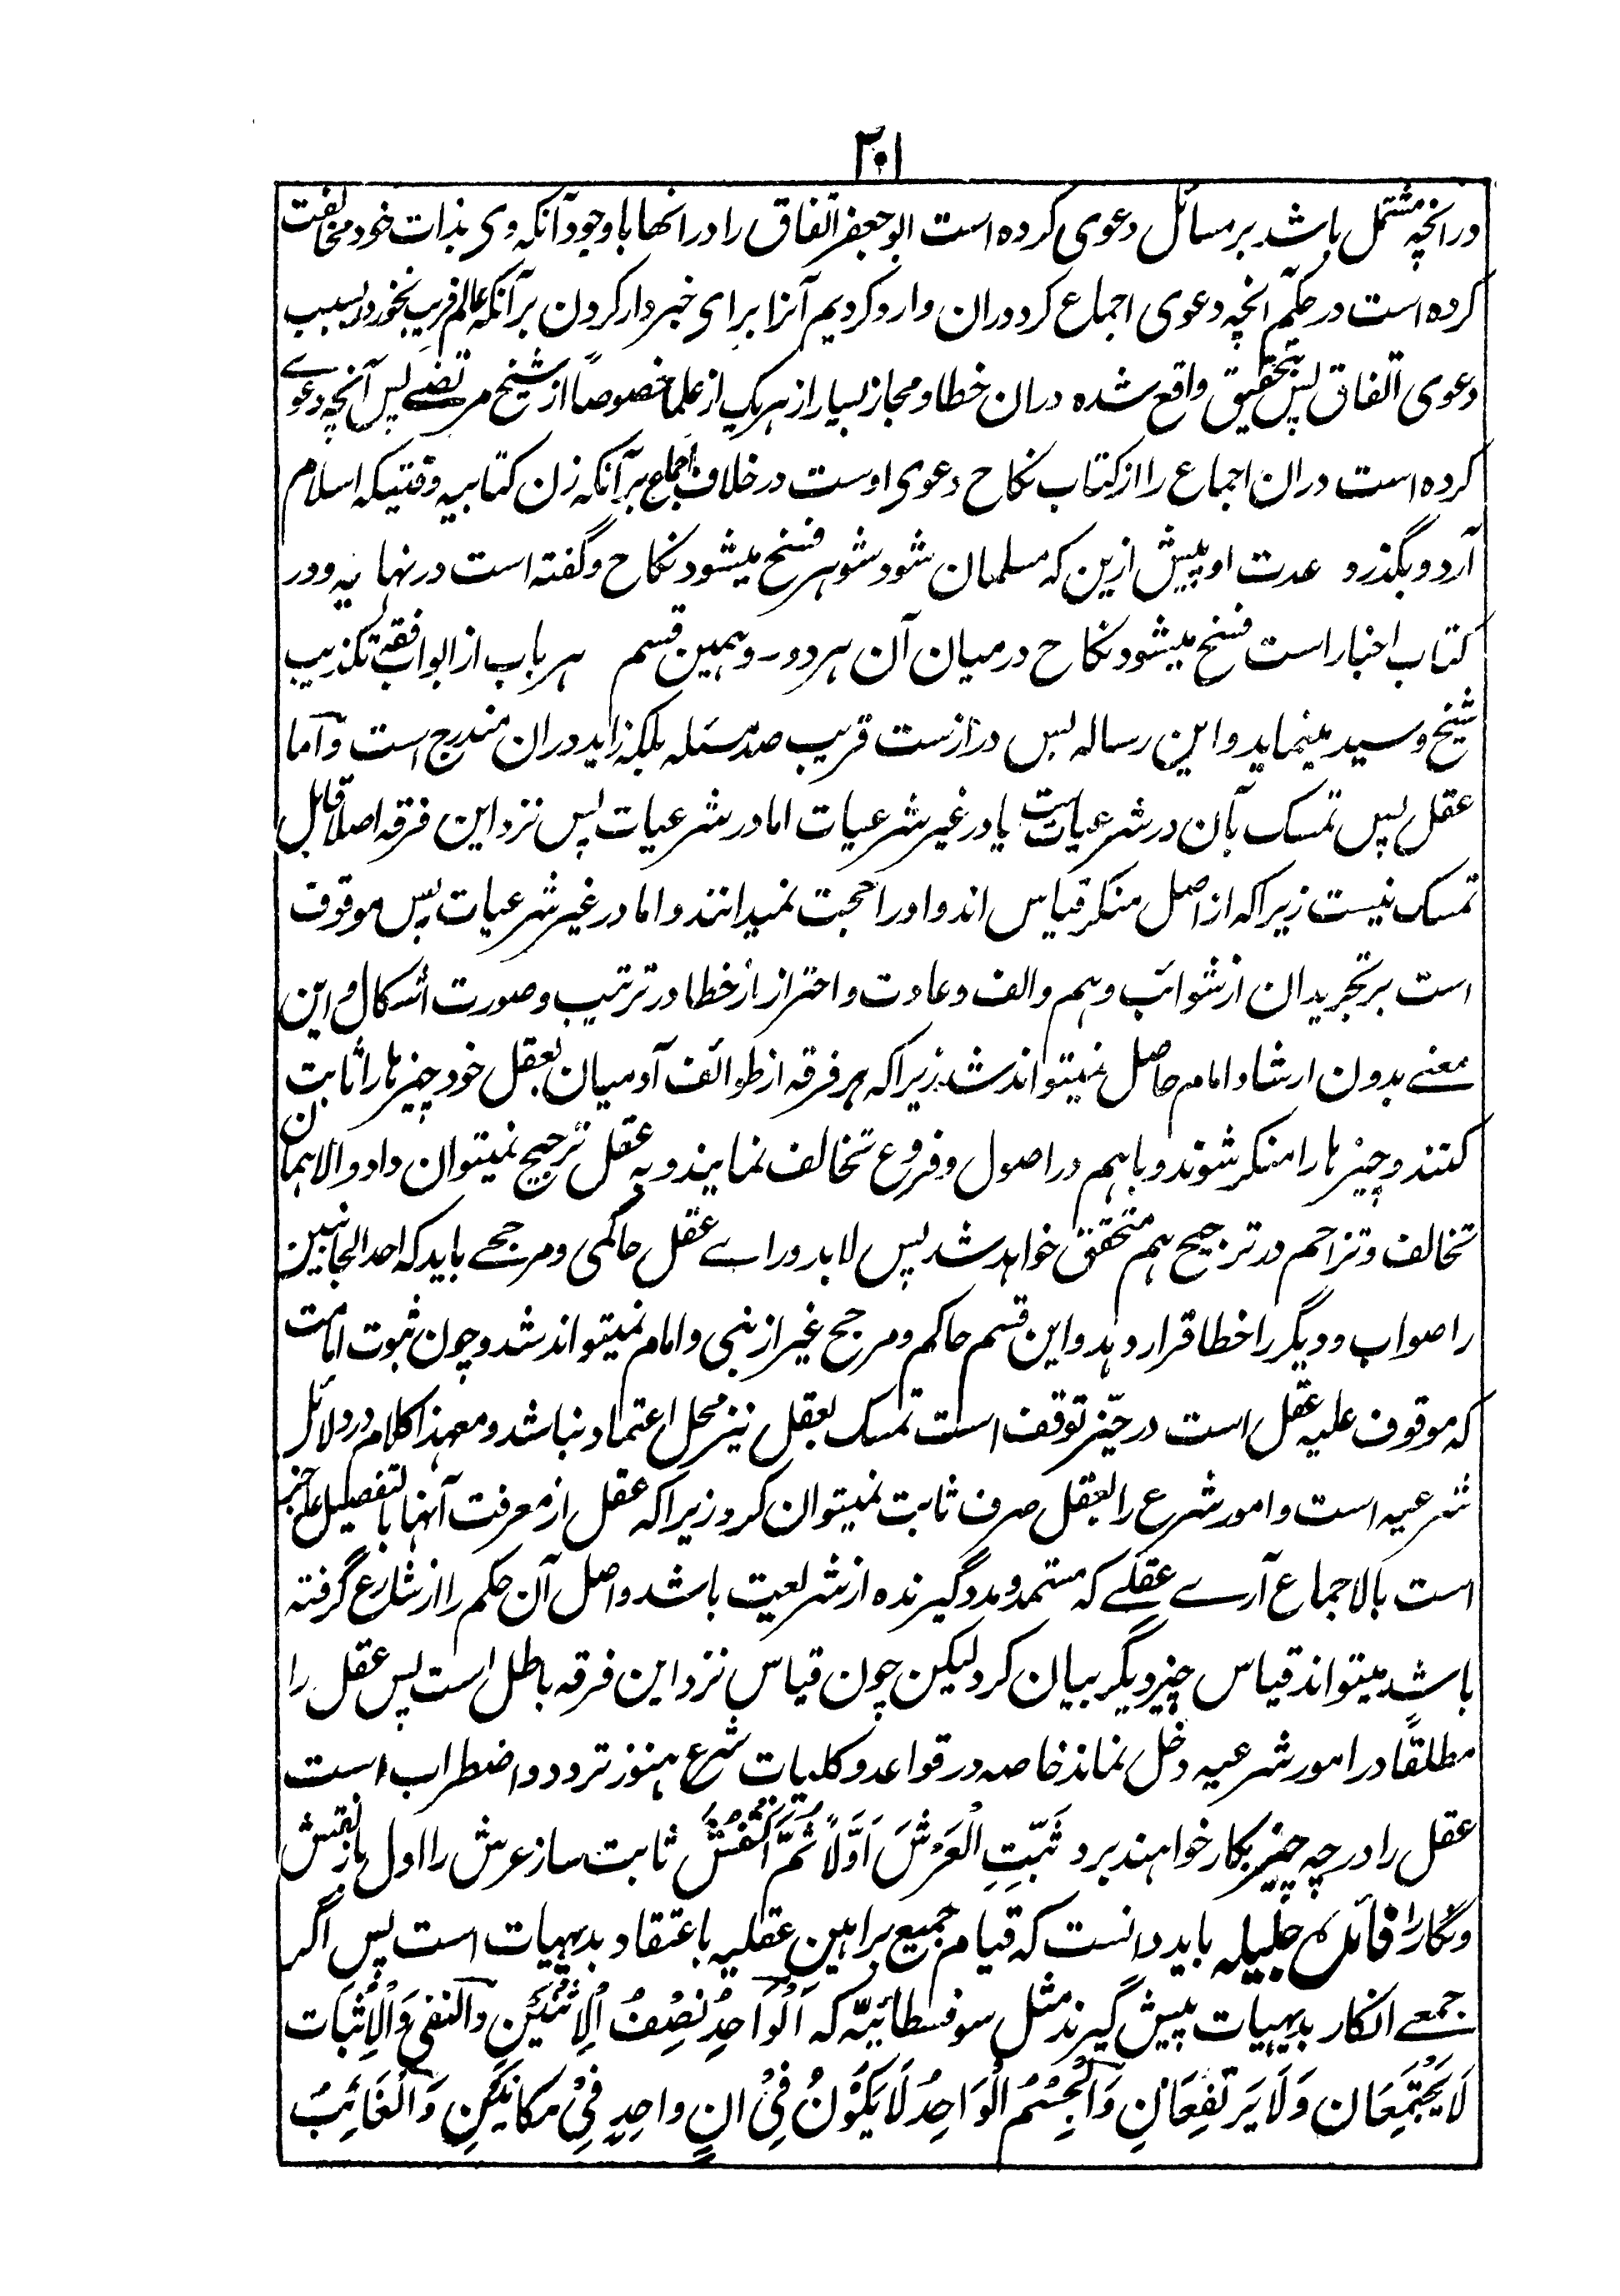 ۲۰۱
درانچه مشتمل باشد بر مسائل دعوی کرده است ابوجعفر اتفاق را درانها باوجود آنکه وی بذات خود مخالفت
کرده است در حکم آنچه دعوی اجماع کرد دران وارد کردیم آنرا برای خبردار کردن بر آنکه عالم فریب نخورد بسبب
دعوی اتفاق پس بتحقیق واقع شده دران خطا و مجاز بسیار از هر یک از علما خصوصاً از شیخ مرتضے پس آنچه دعوے
کرده است دران اجماع را از کتاب نکاح دعوی اوست در خلاف اجماع برآنکه زن کتابیه وقتیکه اسلام
آرد و بگذرد عدت او پیش ازین که مسلمان شود شوهر فسخ میشود نکاح و گفته است در نهایه و در
کتاب اخبار است فسخ میشود نکاح درمیان آن هر دو ـ و همین قسم هر باب از ابواب فقه تکذیب
شیخ و سید مینماید و این رساله بس درازست قریب صد مسئله بلکه زاید دران مندرج است و اما
عقل پس تمسک بآن در شرعیات است یا در غیر شرعیات اما در شرعیات پس نزد این فرقه اصلا قابل
تمسک نیست زیرا که از اصل منکر قیاس اند و او را حجت نمیدانند و اما در غیر شرعیات پس موقوف
است بر تجرید ان از شوائب وهم و الف و عادت و احتراز از خطا در ترتیب و صورت اشکال و این
معنے بدون ارشاد امام حاصل نمیتواند شد زیرا که هر فرقه از طوائف آدمیان بعقل خود چیزها را ثابت
کنند و چیزها را منکر شوند و باهم در اصول و فروع تخالف نمایند و به عقل ترجیح نمیتوان داد و الا همان
تخالف و تزاحم در ترجیح هم متحقق خواهد شد پس لابد وراے عقل حاکمی و مرجحے باید که احد الجانبین
را صواب و دیگر را خطا قرار دهد و این قسم حاکم و مرجح غیر از نبی و امام نمیتواند شد و چون ثبوت امامت
که موقوف علیه عقل است در حیّز توقف است تمسک بعقل نیز محل اعتماد نباشد و معهذا کلام در دلائل
شرعیه است و امور شرع را بعقل صرف ثابت نمیتوان کرد زیرا که عقل از معرفت آنها بالتفصیل عاجز
است بالاجماع آرے عقلے که مستمد و مددگیرنده از شریعت باشد و اصل آن حکم را از شارع گرفته
باشد میتواند قیاس چیز دیگر ببیان کرد لیکن چون قیاس نزد این فرقه باطل است پس عقل را
مطلقاً در امور شرعیه دخل نماند خاصه در قواعد و کلیات شرع هنوز تردد و اضطراب است
عقل را در چه چیز بکار خواهند برد ثَبِّتِ الْعَرْشَ اَوَّلاً ثُمَّ انْقُشْ ثابت ساز عرش را اول باز نقش
و نگار را فائدہ جلیله باید دانست که قیام جمیع براهین عقلیه باعتقاد بدیهیات است پس اگر
جمعے انکار بدیهیات پیش گیرند مثل سوفسطائیّه که اَلْوَاحِدُ نِصْفُ الْاِثْنَیْنِ وَالنفی وَالْاِثْبَات
لَا یَجْتَمِعَان وَلَا یَرْتَفِعَانِ وَالْجِسْمُ الْوَاحِدُ لَا یَکُوْنُ فِیْ انٍ واحِدٍ فِیْ مَکانَیْنِ وَالْغَائِبُ